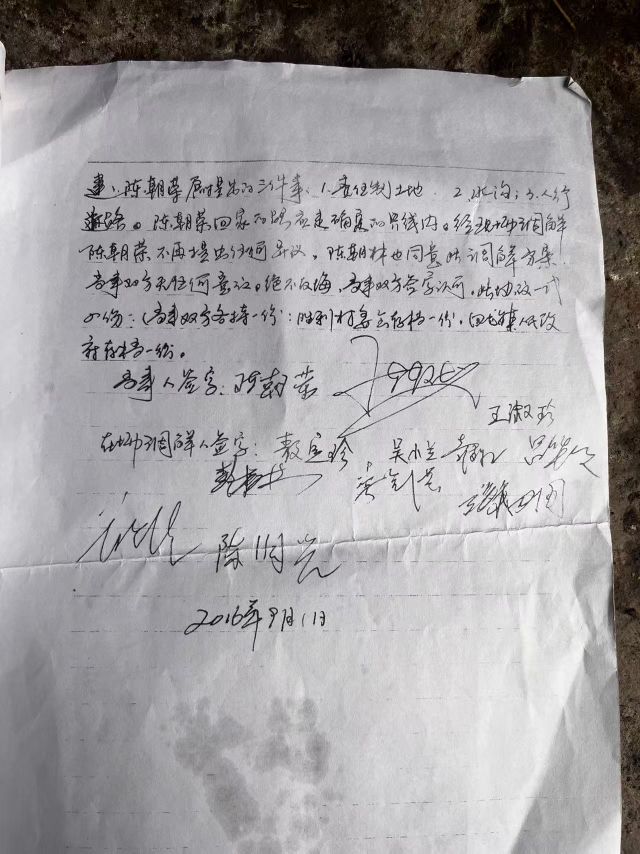 建、陈朝荣原时提出的三件事：1.责任制土地 2.水沟；3.人行
道路。陈朝荣回家的路应走确定的界线内。经现场调解
陈朝荣不再提出任何异议，陈朝林也同意此调解方案
当事双方无任何意议。绝不反悔，当事双方签字认可，此协议一式
四份：（当事双方各持一份：胜利村委会存档一份，镇人民政
府存档一份。
当事人签字：陈朝荣
王淑珍
在场调解人签字：敖定珍 吴小兰
陈明光
2016年9月11日